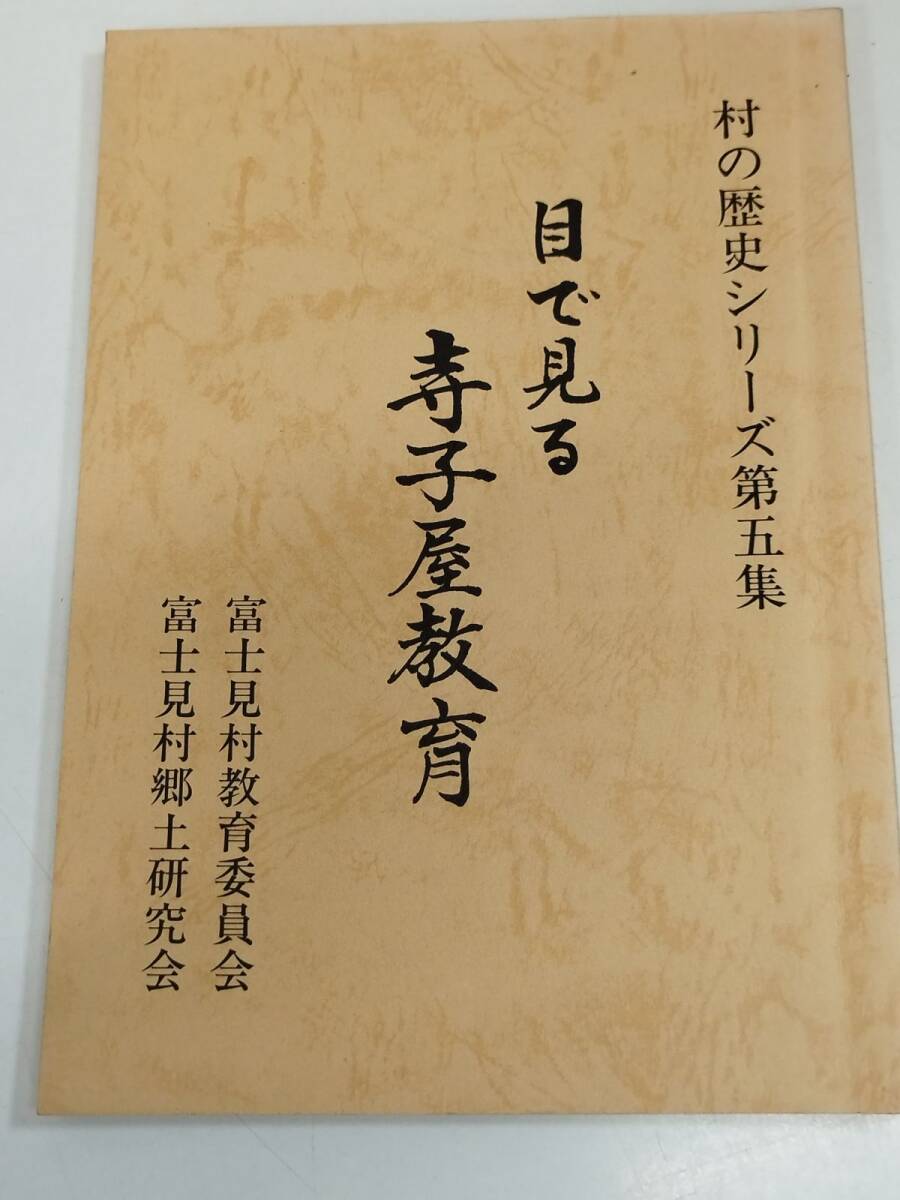 村の歴史シリーズ第五集
目で見る
寺子屋教育
富士見村教育委員会
富士見村郷土研究会